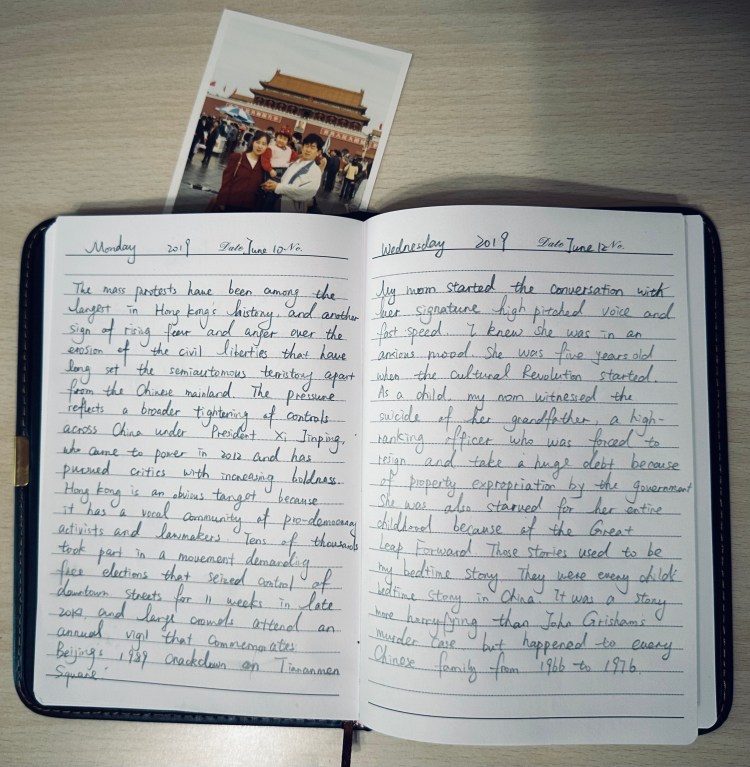 Monday 2019 Date June 10 No.
The mass protests have been among the
largest in Hong Kong's history, and another
sign of rising fear and anger over the
erosion of the civil liberties that have
long set the semiautomous territory apart
from the Chinese mainland. The pressure
reflects a broader tightening of controls
across China under President Xi Jinping,
who came to power in 2012 and has
pursued critics with increasing boldness.
Hong Kong is an obvious target because
it has a vocal community of pro-democracy
activists and lawmakers. Tens of thousands
took part in a movement demanding
free elections that seized control of
downtown streets for 11 weeks in late
and large crowds attend an
annual vigil that commemorates
Beijing's 1989 crackdown on Tinnanmen
Square.
Wednesday 2019 Date June 12 No.
My mom started the conversation with
her signature high pitched voice and
fast speed. I knew she was in an
anxious mood. She was five years old
when the Cultural Revolution started.
As a child, my mom witnessed the
suicide of her grandfather, a high-
ranking officer who was forced to
resign and take a huge debt because
of property expropriation by the government
She was also starved for her entire
childhood because of the Great
Leap Forward. Those stories used to be
my bedtime story. They were every child's
bedtime story in China. It was a story
more horryfying than John Grishams
murder case but happened to every
Chinese family from 1966 to 1976.